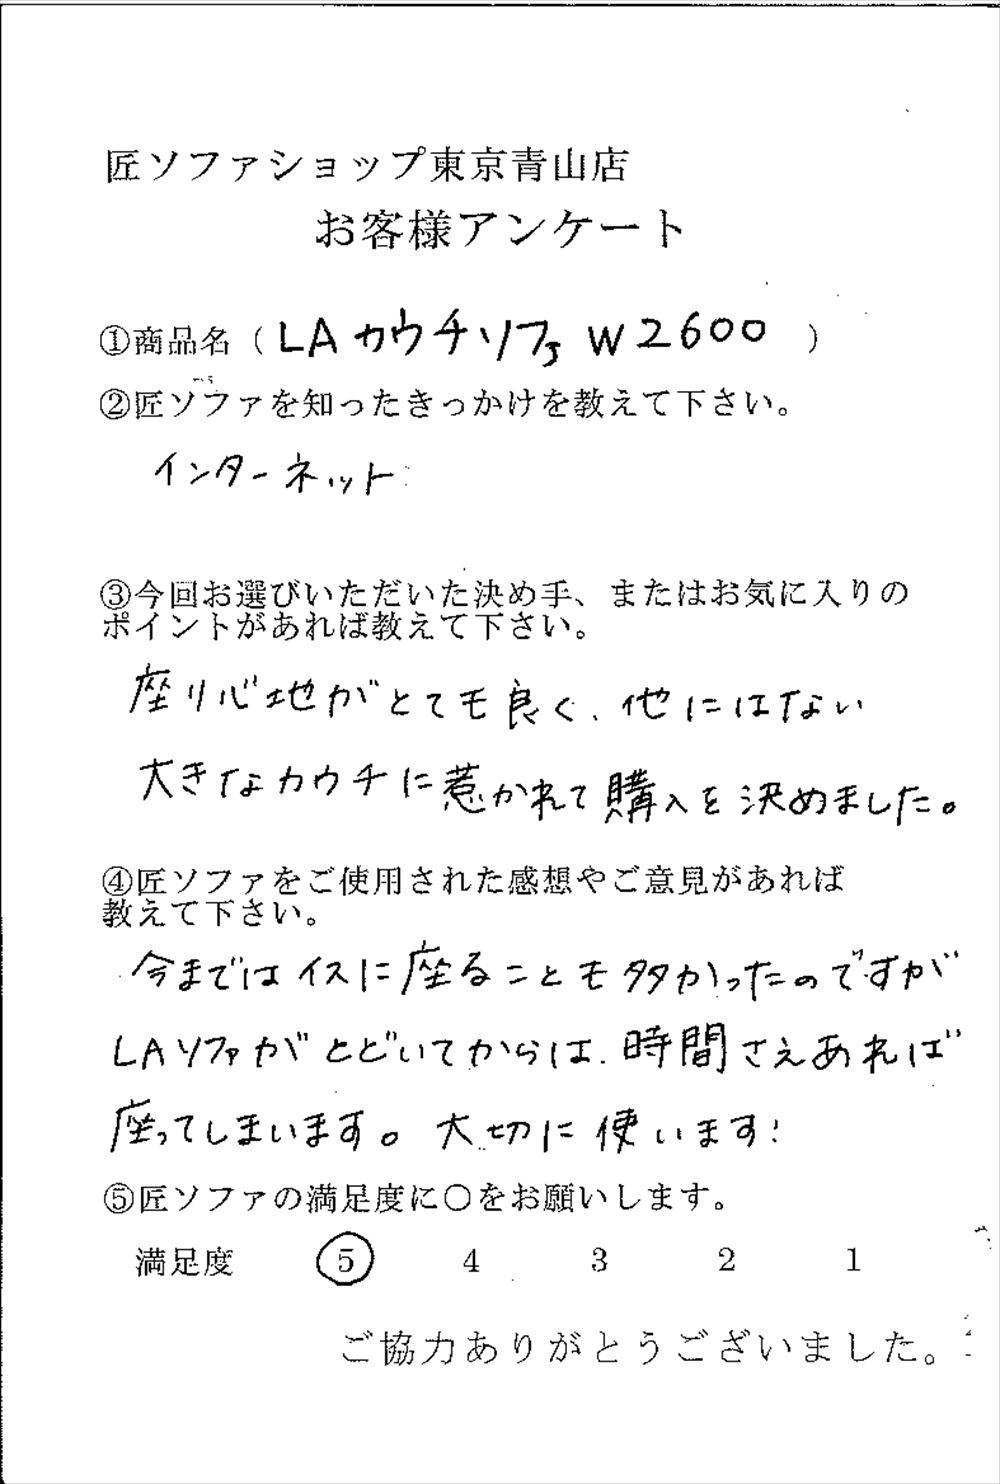 匠ソファショップ東京青山店
お客様アンケート
①商品名（LAカウチソファ W2600）
②匠ソファを知ったきっかけを教えて下さい。
インターネット
③今回お選びいただいた決め手、またはお気に入りの
ポイントがあれば教えて下さい。
座り心地がとても良く、他にはない
大きなカウチに惹かれて購入を決めました。
④匠ソファをご使用された感想やご意見があれば
教えて下さい。
今まではイスに座ることも多かったのですが
LAソファがとどいてからは、時間さえあれば
座ってしまいます。大切に使います！
⑤匠ソファの満足度に〇をお願いします。
満足度 5 4 3 2 1
ご協力ありがとうございました。